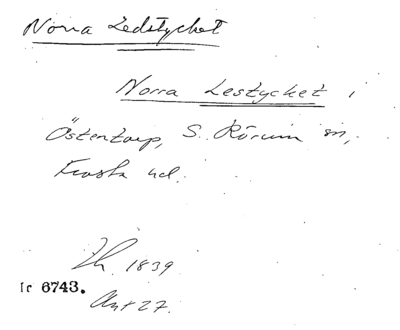 Norra Ledstycket
Norra Lestycket i
Östentorp, S. Rörum sn,
Frosta hd.
Lh. 1839
Ir 6743.
Akt 27.